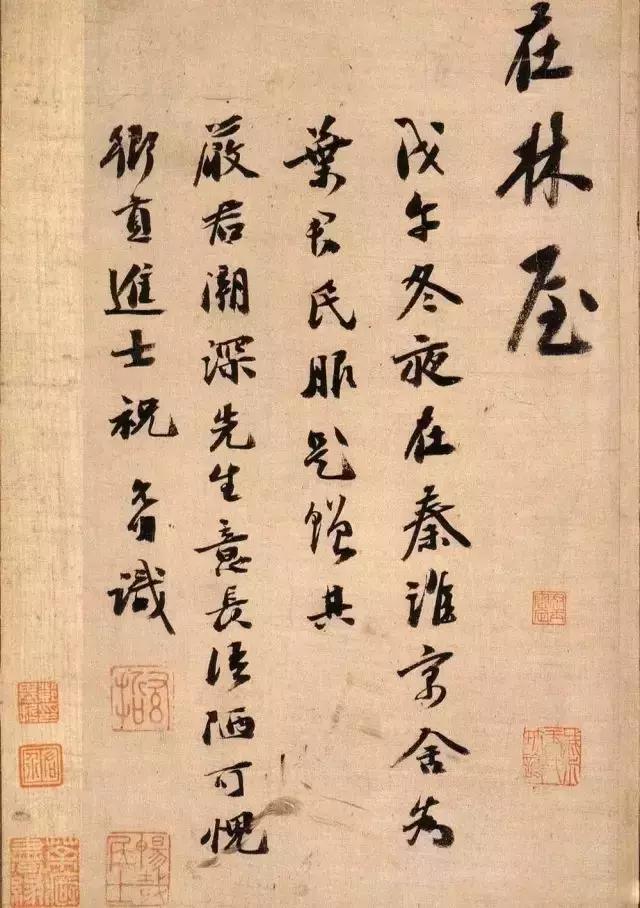 在林屋
戊午冬夜在秦淮京舍为
葉君民服赠其
嚴君潮深先生意長语陋可愧
鄉貢進士祝 識